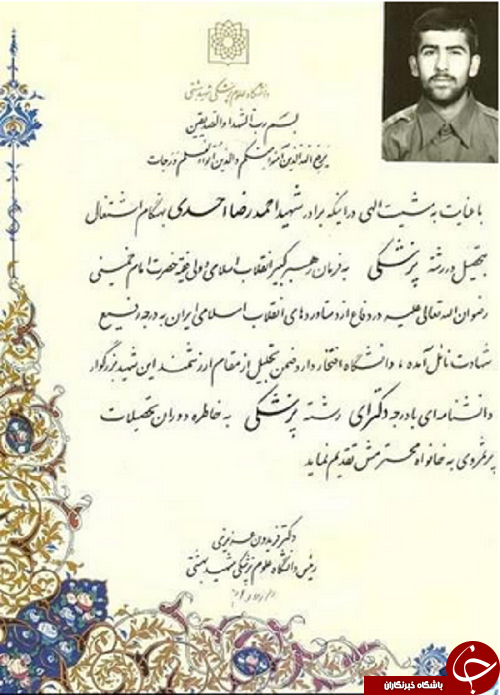 دانشگاه علوم پزشکی شهید بهشتی
بسم رب الشهدا والصدیقین
یرفع الله الذین آمنوا منکم والذین اوتوا العلم درجات
با عنایت به مشیت الهی در اینکه برادر شهید احمد رضا احدی بهنگام اشتغال
بتحصیل در رشته پزشکی به فرمان رهبر کبیر انقلاب اسلامی ولی فقیه حضرت امام خمینی
رضوان الله تعالی علیه در دفاع از دستاوردهای انقلاب اسلامی ایران به درجه رفیع
شهادت نائل آمده ، دانشگاه افتخار دارد ضمن تجلیل از مقام ارزشمند این شهید بزرگوار
دانشنامه ای با درجه دکترای رشته پزشکی به خاطره دوران تحصیلات
پرثمر وی به خانواه محترمش تقدیم نماید
دکتر فریدون عزیزی
رئیس دانشگاه علوم پزشکی شهید بهشتی
باشگاه خبرنگاران